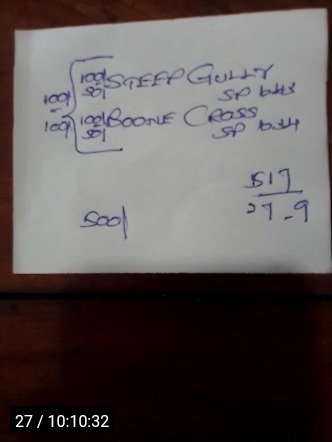 100/ 100/ STEEP GULLY
50/ SP 643
100/ 100/ BOONE CROSS
50/ SP 634
517
27-9
500/
27 / 10:10:32